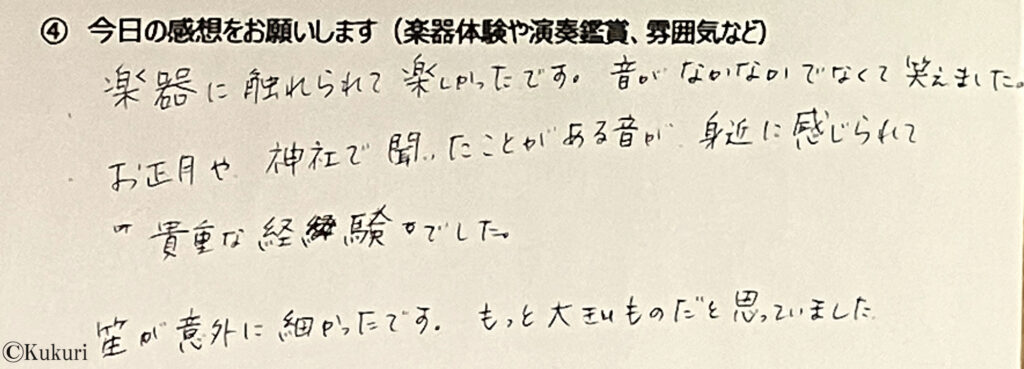 ④ 今日の感想をお願いします（楽器体験や演奏鑑賞、雰囲気など）
楽器に触れられて楽しかったです。音がなかなかでなくて笑えました。
お正月や神社で聞いたことがある音が身近に感じられて
貴重な経験でした。
笙が意外に細かったです。もっと大きいものだと思っていました
©Kukuri